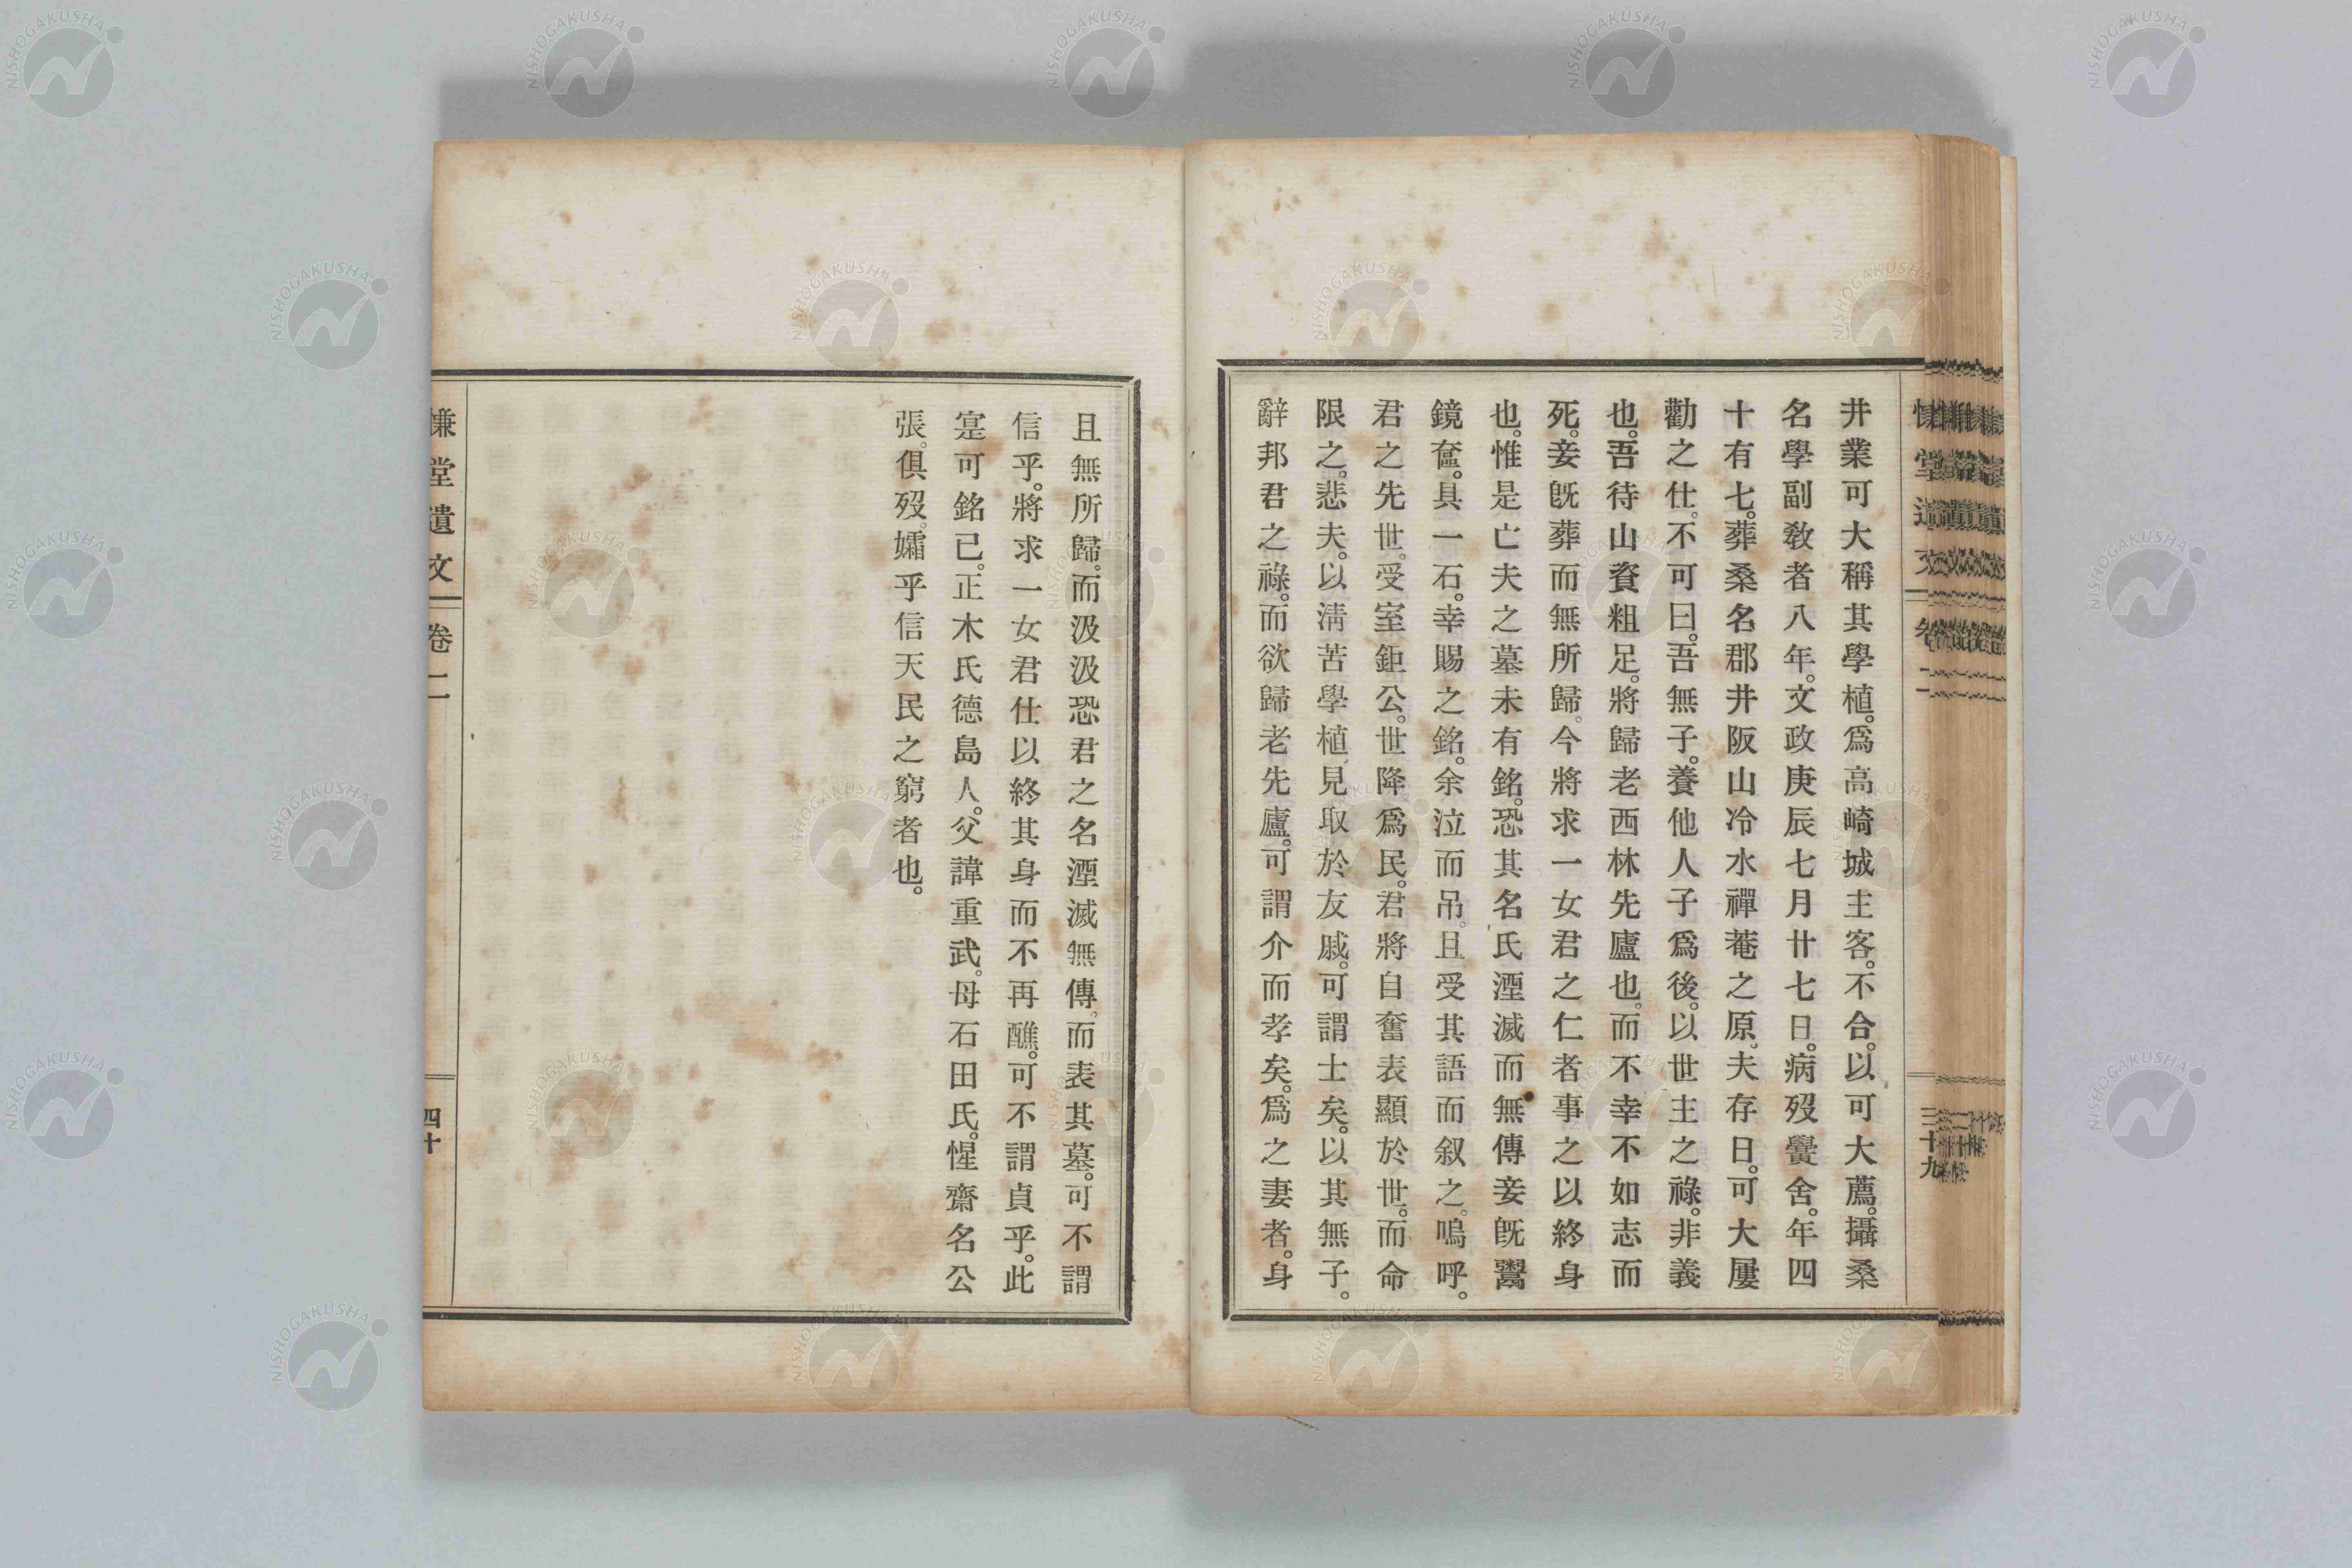 井業可大稱其學植。爲高崎城主客。不合。以可大薦。攝桑
名學副教者八年。文政庚辰七月廿七日。病歿黌舍。年四
十有七。葬桑名郡井阪山冷水禪菴之原。夫存日。可大屢
勸之仕。不可曰。吾無子。養他人子爲後。以世主之祿。非義
也。吾待山資粗足。將歸老西林先廬也。而不幸不如志而
死。妾旣葬而無所歸。今將求一女君之仁者事之以終身
也。惟是亡夫之墓未有銘。恐其名氏湮滅而無傳妾旣鬻
鏡奩。具一石。幸賜之銘。余泣而吊。且受其語而叙之。嗚呼。
君之先世。受室鉅公。世降爲民。君將自奮表顯於世。而命
限之。悲夫。以淸苦學植見取於友戚。可謂士矣。以其無子。
辭邦君之祿。而欲歸老先廬。可謂介而孝矣。爲之妻者。身
且無所歸。而汲汲恐君之名湮滅無傳。而表其墓。可不謂
信乎。將求一女君仕以終其身而不再醮。可不謂貞乎。此
寔可銘已。正木氏德島人。父諱重武。母石田氏。惺齋名公
張。俱歿。孀乎信天民之窮者也。
慊堂遺文 卷二 三十九
慊堂遺文 卷二 四十
NISHOGAKUSHA